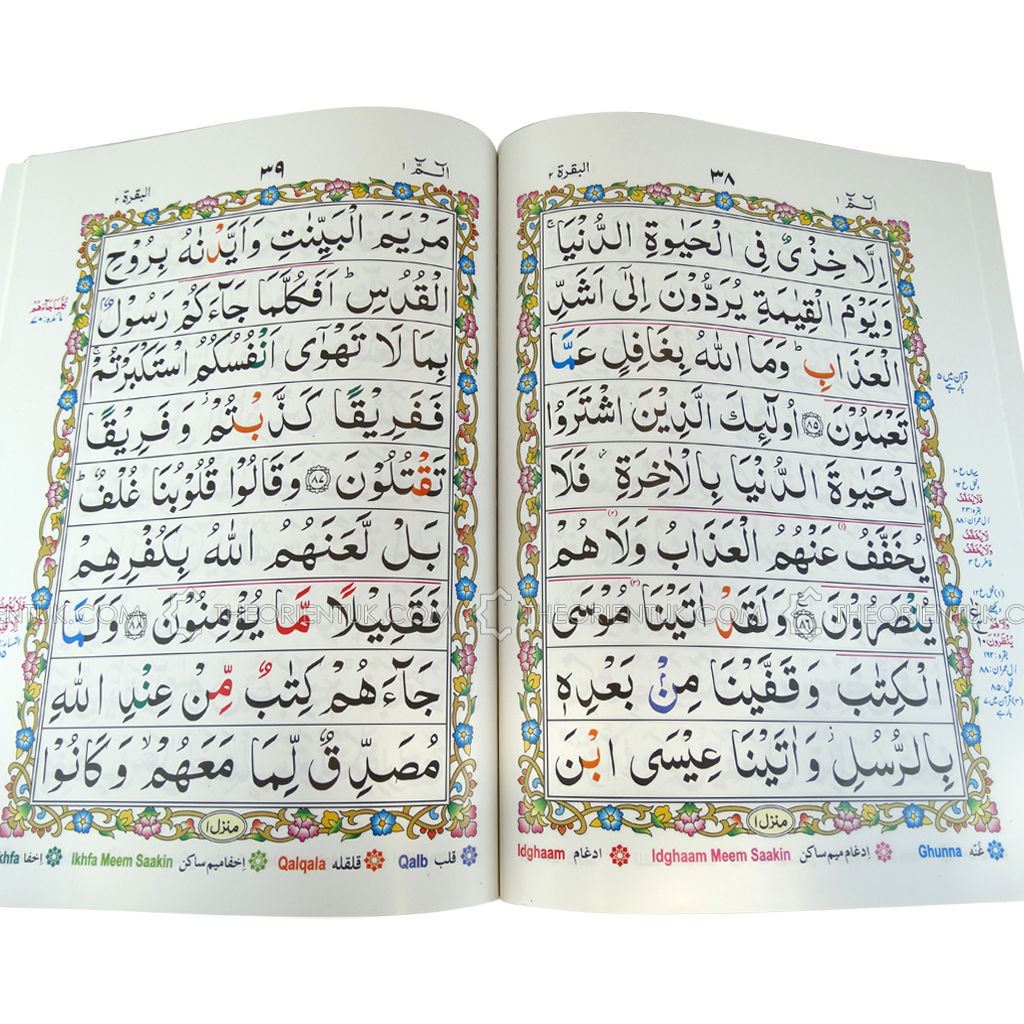 البقرة ٢
٣٨
الٓمّٓ ١
اِلَّا خِزْیٌ فِی الْحَیٰوةِ الدُّنْیَا ۚ
وَیَوْمَ الْقِیٰمَةِ یُرَدُّوْنَ اِلٰۤی اَشَدِّ
الْعَذَابِ ؕ وَمَا اللّٰهُ بِغَافِلٍ عَمَّا
تَعْمَلُوْنَ ﴿۸۵﴾ اُولٰٓئِكَ الَّذِیْنَ اشْتَرَوُا
الْحَیٰوةَ الدُّنْیَا بِالْاٰخِرَةِ ۫ فَلَا
یُخَفَّفُ عَنْهُمُ الْعَذَابُ وَلَا هُمْ
یُنْصَرُوْنَ ﴿۸۶﴾ وَلَقَدْ اٰتَیْنَا مُوْسَی
الْكِتٰبَ وَقَفَّیْنَا مِنْۢ بَعْدِهٖ
بِالرُّسُلِ ؗ وَاٰتَیْنَا عِیْسَی ابْنَ
منزل ١
Ghunna غنّه
Idghaam Meem Saakin اِدغام میم ساکن
Idghaam ادغام
الٓمّٓ ١
٣٩
البقرة ٢
مَرْیَمَ الْبَیِّنٰتِ وَاَیَّدْنٰهُ بِرُوْحِ
الْقُدُسِ ؕ اَفَكُلَّمَا جَآءَكُمْ رَسُوْلٌۢ
بِمَا لَا تَهْوٰۤی اَنْفُسُكُمُ اسْتَكْبَرْتُمْ ۚ
فَفَرِیْقًا كَذَّبْتُمْ ؗ وَفَرِیْقًا
تَقْتُلُوْنَ ﴿۸۷﴾ وَقَالُوْا قُلُوْبُنَا غُلْفٌ ؕ
بَلْ لَّعَنَهُمُ اللّٰهُ بِكُفْرِهِمْ
فَقَلِیْلًا مَّا یُؤْمِنُوْنَ ﴿۸۸﴾ وَلَمَّا
جَآءَهُمْ كِتٰبٌ مِّنْ عِنْدِ اللّٰهِ
مُصَدِّقٌ لِّمَا مَعَهُمْ ۙ وَكَانُوْا
منزل ١
Qalb قلب
Qalqala قلقله
Ikhfa Meem Saakin اِخفا میم ساکن
khfa اِخفا
THEORIENTUK.COM